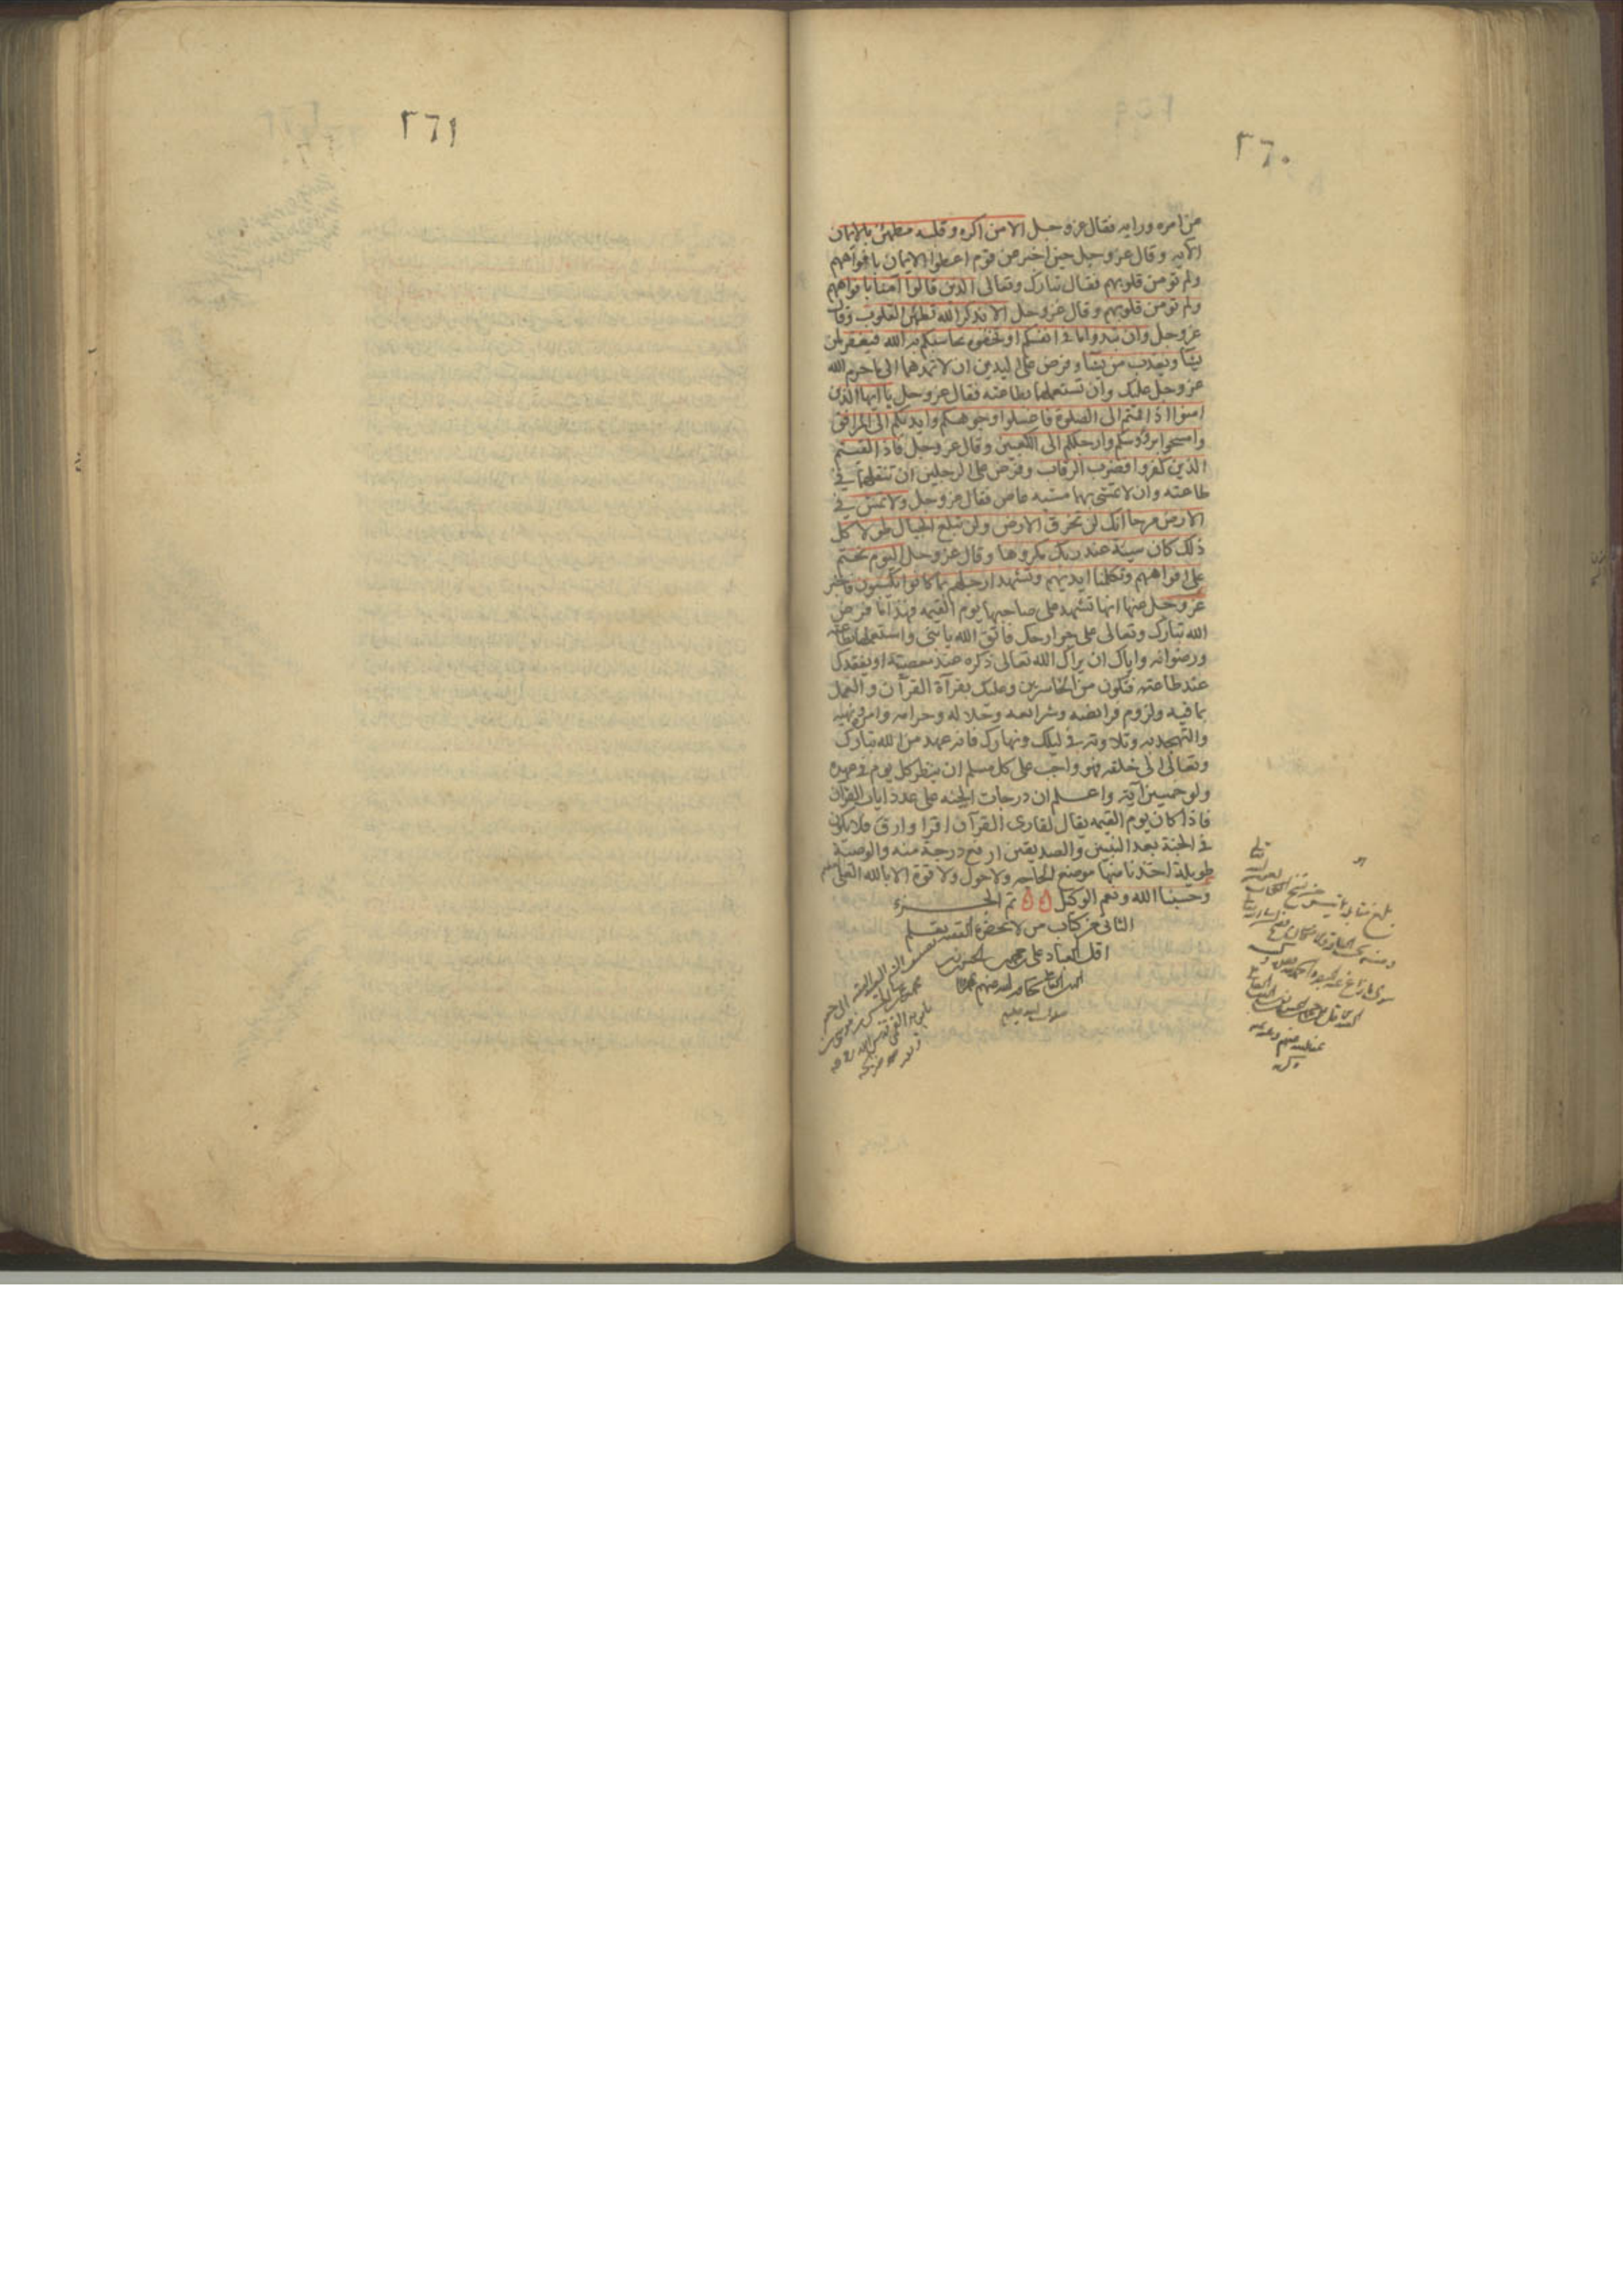 ٢٦٠
من امره ورايه فقال عز وجل الا من اكره وقلبه مطمئن بالايمان
الآيه وقال عز وجل حين اخبر عن قوم اعطوا الايمان بافواههم
ولم تومن قلوبهم فقال تبارك وتعالى الذين قالوا آمنا بافواههم
ولم تومن قلوبهم وقال عز وجل الا بذكر الله تطمئن القلوب وقال
عز وجل وان تبدوا ما في انفسكم او تخفوه يحاسبكم به الله فيغفر لمن
يشآ ويعذب من يشآ وفرض على اليدين ان لا تمدهما الى ما حرم الله
عز وجل عليك وان تستعملهما بطاعته فقال عز وجل يا ايها الذين
امنوا اذا قمتم الى الصلوة فاغسلوا وجوهكم وايديكم الى المرافق
وامسحوا برؤوسكم وارجلكم الى الكعبين وقال عز وجل فاذا لقيتم
الذين كفروا فضرب الرقاب وفرض على الرجلين ان تنقلهما في
طاعته وان لا تمشي بهما مشية عاص فقال عز وجل ولا تمش في
الارض مرحا انك لن تخرق الارض ولن تبلغ الجبال طولا كل
ذلك كان سيئه عند ربك مكروها وقال عز وجل اليوم نختم
على افواههم وتكلمنا ايديهم وتشهد ارجلهم بما كانوا يكسبون فاخبر
عز وجل عنها انها تشهد على صاحبها يوم القيمه فهذا ما فرض
الله تبارك وتعالى على جوارحك فاتق الله يا بني واستعملها بطاعته
ورضوانه واياك ان يراك الله تعالى ذكره عند معصيته او يفقدك
عند طاعته فتكون من الخاسرين وعليك بقرآة القرآن والعمل
بما فيه ولزوم فرايضه وشرايعه وحلاله وحرامه وامره ونهيه
والتهجد به وتلاوته في ليلك ونهارك فانه عهد من الله تبارك
وتعالى الى خلقه فهو واجب على كل مسلم ان ينظر كل يوم في عهده
ولو خمسين آية واعلم ان درجات الجنه على عدد ايات القرآن
فاذا كان يوم القيمه يقال لقارى القرآن اقرا وارق فلا يكون
في الجنة بعد النبيين والصديقين ارفع درجة منه والوصية
طويلة اخذنا منها موضع الحاجه ولا حول ولا قوة الا بالله العلي العظيم
وحسبنا الله ونعم الوكيل تم الجزء
الثاني من كتاب من لا يحضره الفقيه بقلم
اقل العباد علي
٢٦١